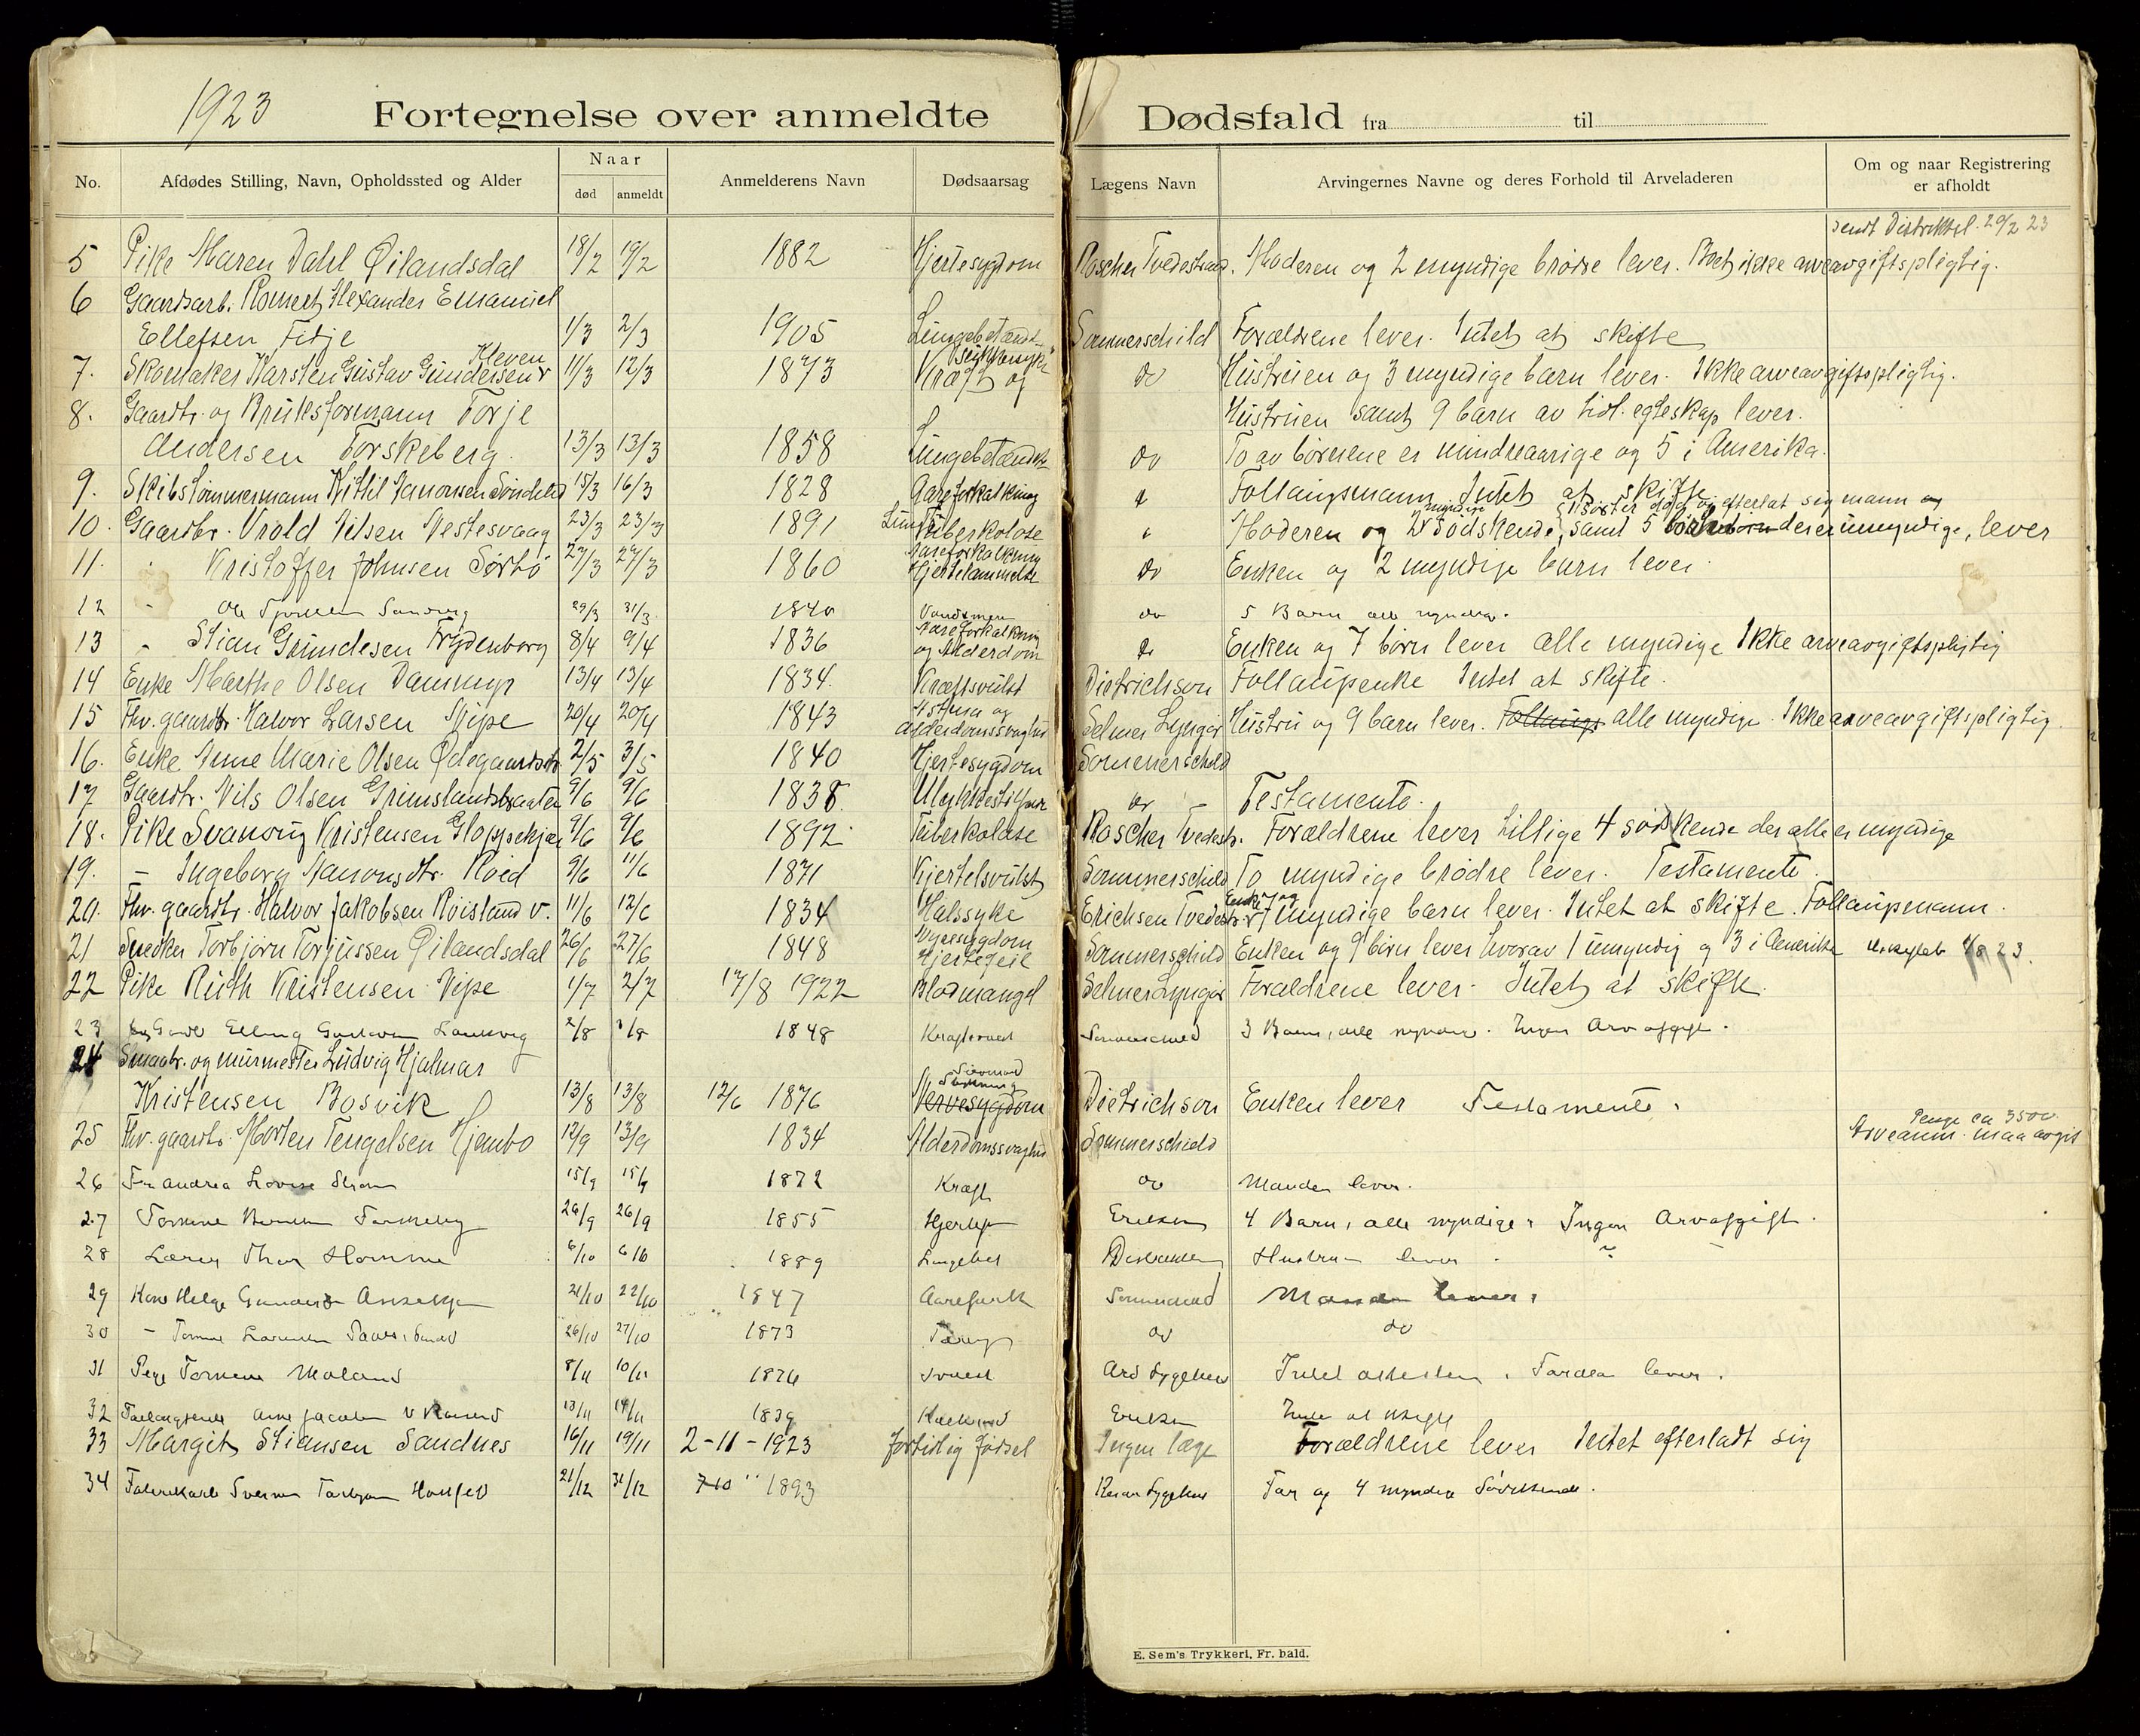 1923 Fortegnelse over anmeldte Dødsfald fra til
No. Afdødes Stilling, Navn, Opholdssted og Alder Naar død anmeldt Anmelderens Navn Dødsaarsag Lægens Navn Arvingernes Navne og deres Forhold til Arveladeren Om og naar Registrering er afholdt
sendt Distriktsl. 20/2 23
5 Pike Maren Dahl Øilandsdal 18/2 19/2 1882 Hjertesygdom Roscher Tvedestrand. Moderen og 2 myndige brødre lever. Boet ikke arveavgiftspligtig.
6 Gaardsarb. Alexander Emanuel
Ellefsen Fidje 1/3 2/3 1905 Lungebetænd. Sommerschild Forældrene lever. Intet at skifte
7. Skomaker Karsten Gustav Gundersen Kleven 11/3 12/3 1873 Kræft og sukkersyke do Hustruen og 3 myndige barn lever. Ikke arveavgiftspligtig.
8. Gaardbr. og Bruksformann Torje Hustruen samt 9 barn av tidl. egteskap lever.
Andersen Torskeberg. 13/3 13/3 1858 Lungebetændelse do To av børnene er mindreaarige og 5 i Amerika.
9. Skibstømmermann Kittil Aanonsen Søndeled 15/3 16/3 1828 Aareforkalkning Follaugsmann Intet at skifte
10. Gaardbr. Vrold Nilsen Vestesvaag 23/3 23/3 1891 Lunge Tuberkolose Moderen og 2 myndige Sødskende, samt 5 der er umyndige, lever
11. Kristoffer Johnsen Sørbø 27/3 27/3 1860 Aareforkalkning Hjertelammelse do Enken og 2 myndige barn lever
12 - Ole 29/3 31/3 1840 do 5 Barn alle myndige.
13 - Stian Gundesen Frydenborg 8/4 9/4 1836 Aareforkalkning og Alderdom Enken og 7 børn lever alle myndige Ikke arveavgiftspligtig
14 Enke Marthe Olsen Dammyr 13/4 13/4 1834. Kræftsvulst Dietrichson Follaugsenke Intet at skifte.
15 Fhv. gaardbr. Halvor Larsen Vipe 20/4 20/4 1843 Astma og Alderdomssvaghed Selmer Lyngør Hustru og 9 barn lever. Follaugs alle myndige. Ikke arveavgiftspligtig.
16. Enke Anne Marie Olsen Ødegaardsdr. 2/5 3/5 1840 Hjertesygdom Sommerschild
17 Gaardbr. Nils Olsen Grimslandsbraaten 9/6 9/6 1838. Ulykkestilfælde do - Testamente.
18. Pike Svanaug Kristensen Gloppekjær 9/6 9/6 1892. Tuberkolose Roscher Tvedestr. Forældrene lever tillige 4 sødskende der alle er myndige
19. - Ingeborg Aanonsdtr. Røed 9/6 11/6 1871 Kjertelsvulst Sommerschild To myndige brødre lever. Testamente.
20. Fhv. gaardbr. Halvor Jakobsen Røisland v. 11/6 12/6 1834 Halssyke Erichsen Tvedestr. Enke og 7 myndige barn lever. Intet at skifte. Follaugsmann.
21 Snedker Torbjørn Torjussen Øilandsdal 26/6 27/6 1848 Nyresygdom Hjertefeil Sommerschild Enken og 9 børn lever hvorav 1 umyndig og 3 i Amerika 4/8 23.
22 Pike Ruth Kristensen Vipe 1/7 2/7 17/8 1922 Blodmangel Selmer Lyngør Forældrene lever. Intet at skifte.
23 Elling 2/8 3/8 1848 Kræftsvulst Sommerschild 3 Barn, alle myndige. Ingen Arvafgift.
24 Smaabr. og murmester Ludvig Hjalmar
Kristensen Bosvik 13/8 13/8 12/6 1876 Nervesygdom Dietrichson Enken lever Testamente.
25 Fhv. gaardbr. Morten Tengelsen Hjembo 12/9 13/9 1834 Alderdomssvaghed Sommerschild Penge ca 3500 Arveanm. maa avgis
26 Fru Andrea Lovise Strøm 15/9 15/9 1872 Kræft do Manden lever.
27 Tomine 26/9 26/9 1855 Hjertef Eriksen 4 Barn, alle myndige, Ingen Arvafgift.
28 Lærer Thor Homme 6/10 6/10 1889 Lungebet Hustruen lever.
29 Kone Helge 21/10 22/10 1847 Aareforkalk Sommerschild Manden lever.
30 - 26/10 27/10 1873 do do
31 Pige Tomine Moland 8/11 10/11 1876 Svulst Ard Sygehus Intet efterladt. Forældre lever.
32 13/11 14/11 1839 Eriksen Intet at skifte
33 Margit Stiansen Sandnes 16/11 19/11 2-11-1923 fortidlig fødsel Ingen læge Forældrene lever Intet efterladt sig
34 Fabrikarb Sverre Torbjørn 21/12 31/12 1893 Sygehus Far og 4 myndige Sødskende.
E. Sem's Trykkeri, Fr. hald.